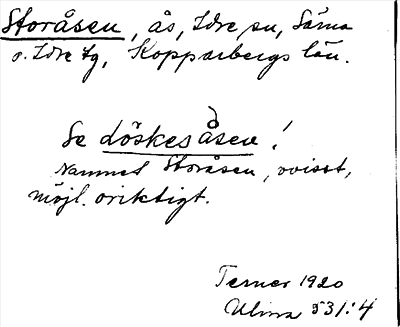 Storåsen, ås, Idre sn, Särna
o. Idre tg, Kopparbergs län.
Se döskesåsen!
Namnet Storåsen, ovisst,
möjl. oriktigt.
Terner 1920
Ulma 531:4